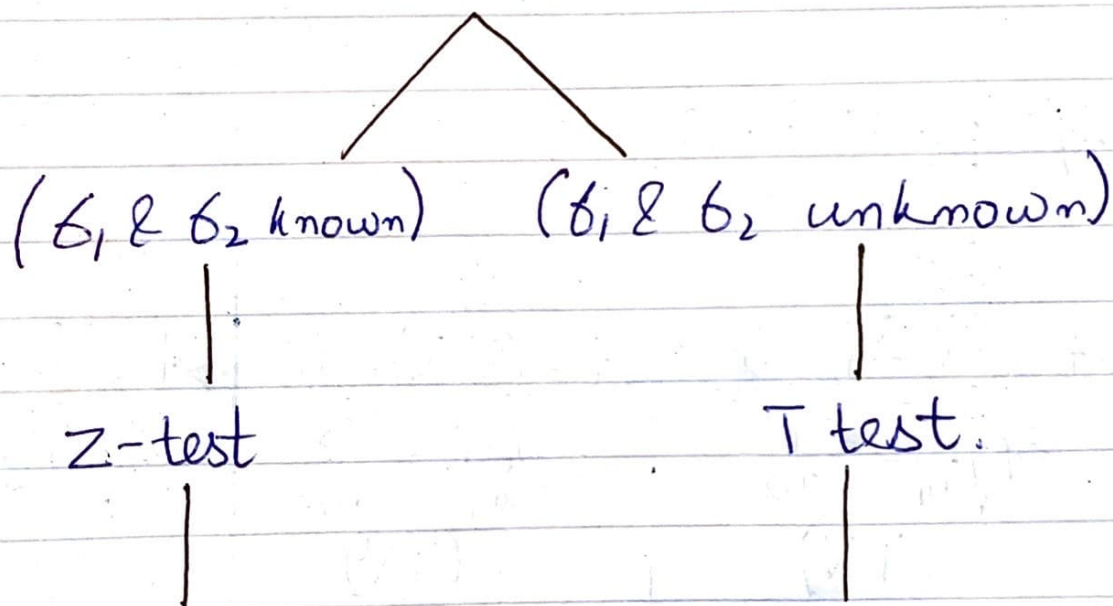 (σ₁ & σ₂ known) (σ₁ & σ₂ unknown)
Z-test T test.